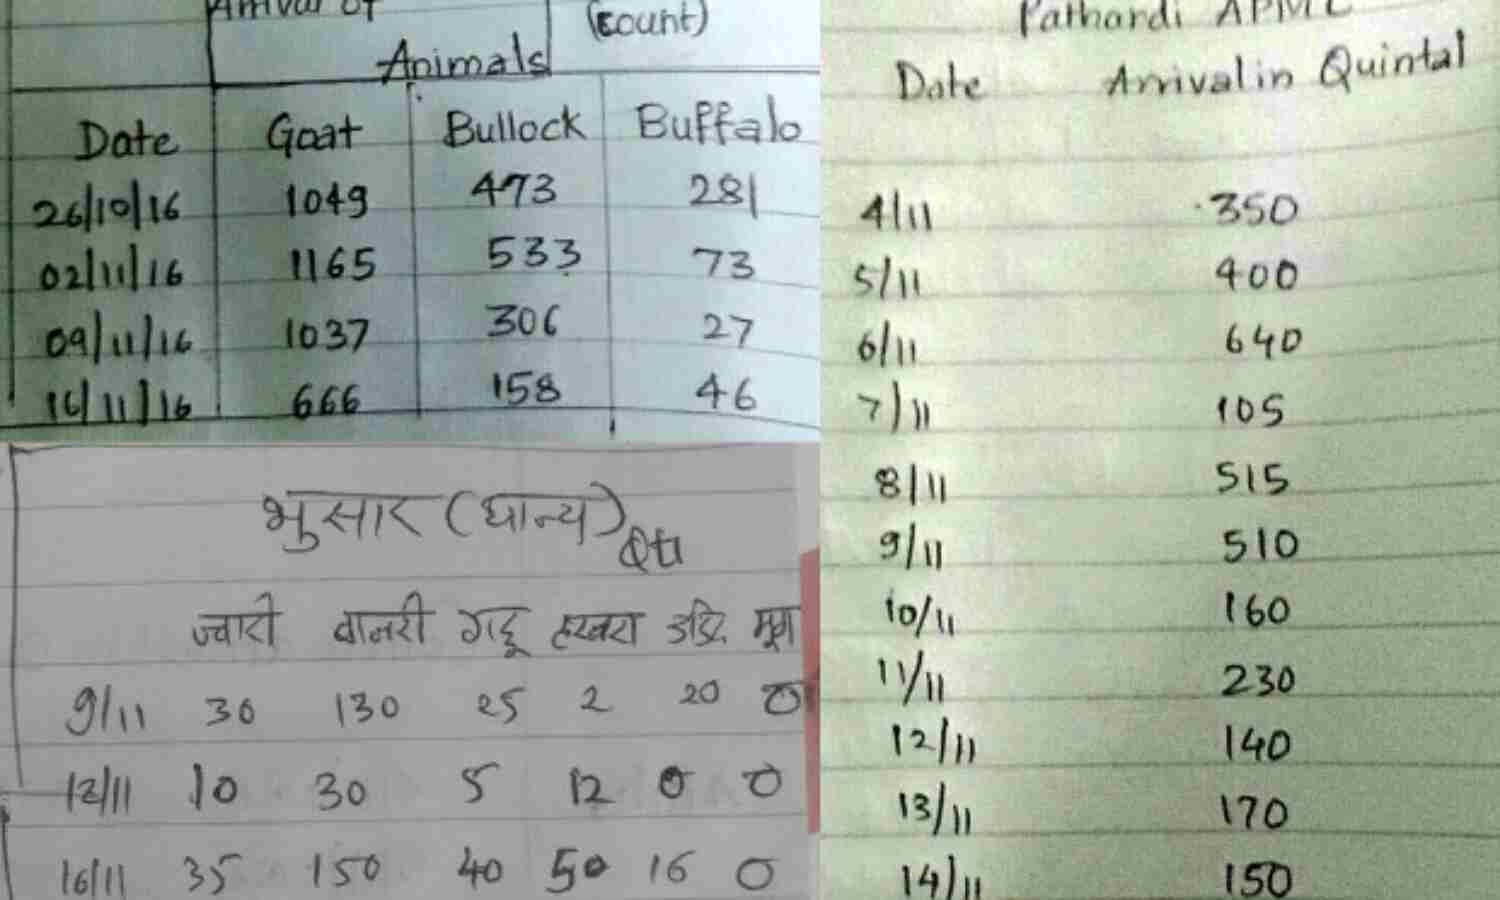 Arrival of (count)
Animals
Date Goat Bullock Buffalo
26/10/16 1049 473 281
02/11/16 1165 533 73
09/11/16 1037 306 27
16/11/16 666 158 46
भुसार (धान्य) Qtl
ज्वारी बाजरी गहू हरबरा उडिद मूग
9/11 30 130 25 2 20 0
12/11 10 30 5 12 0 0
16/11 35 150 40 50 16 0
Pathardi APMC
Date Arrival in Quintal
4/11 350
5/11 400
6/11 640
7/11 105
8/11 515
9/11 510
10/11 160
11/11 230
12/11 140
13/11 170
14/11 150